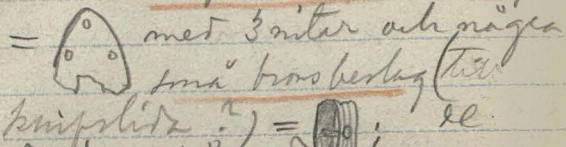 = med 3 nitar och några
små bronsbeslag (till
knifslida?) = ;